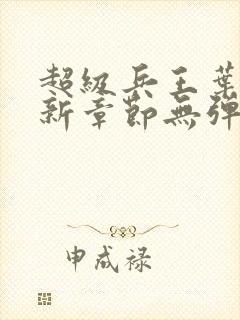 超級兵王葉
新章節無彈
申成禄